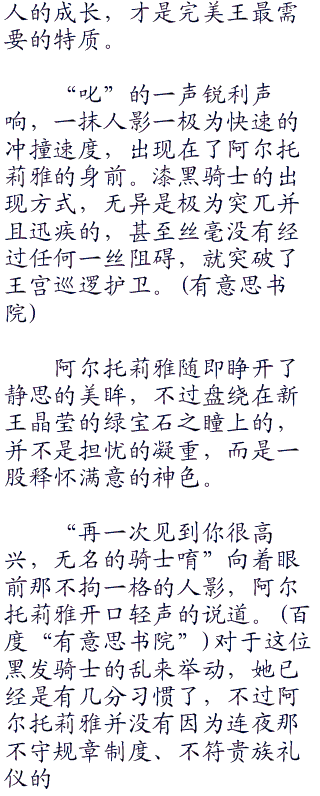 人的成长，才是完美王最需
要的特质。
“叱”的一声锐利声
响，一抹人影一极为快速的
冲撞速度，出现在了阿尔托
莉雅的身前。漆黑骑士的出
现方式，无异是极为突兀并
且迅疾的，甚至丝毫没有经
过任何一丝阻碍，就突破了
王宫巡逻护卫。(有意思书
院)
阿尔托莉雅随即睁开了
静思的美眸，不过盘绕在新
王晶莹的绿宝石之瞳上的，
并不是担忧的凝重，而是一
股释怀满意的神色。
“再一次见到你很高
兴，无名的骑士唷”向着眼
前那不拘一格的人影，阿尔
托莉雅开口轻声的说道。(百
度“有意思书院”)对于这位
黑发骑士的乱来举动，她已
经是有几分习惯了，不过阿
尔托莉雅并没有因为连夜那
不守规章制度、不符贵族礼
仪的